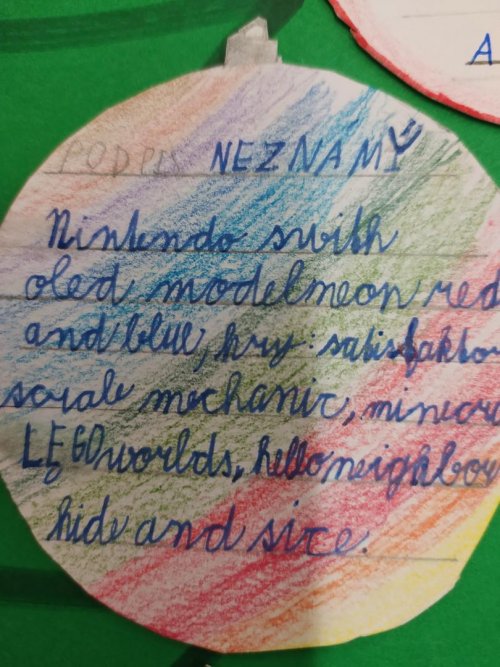 A
PODPIS NEZNAMI
Nintendo swith
oled model meon red
and blue, hry: satisfaktor
scrale mechanic, minecra
LEGO worlds, hello neighbor
hide and sice.